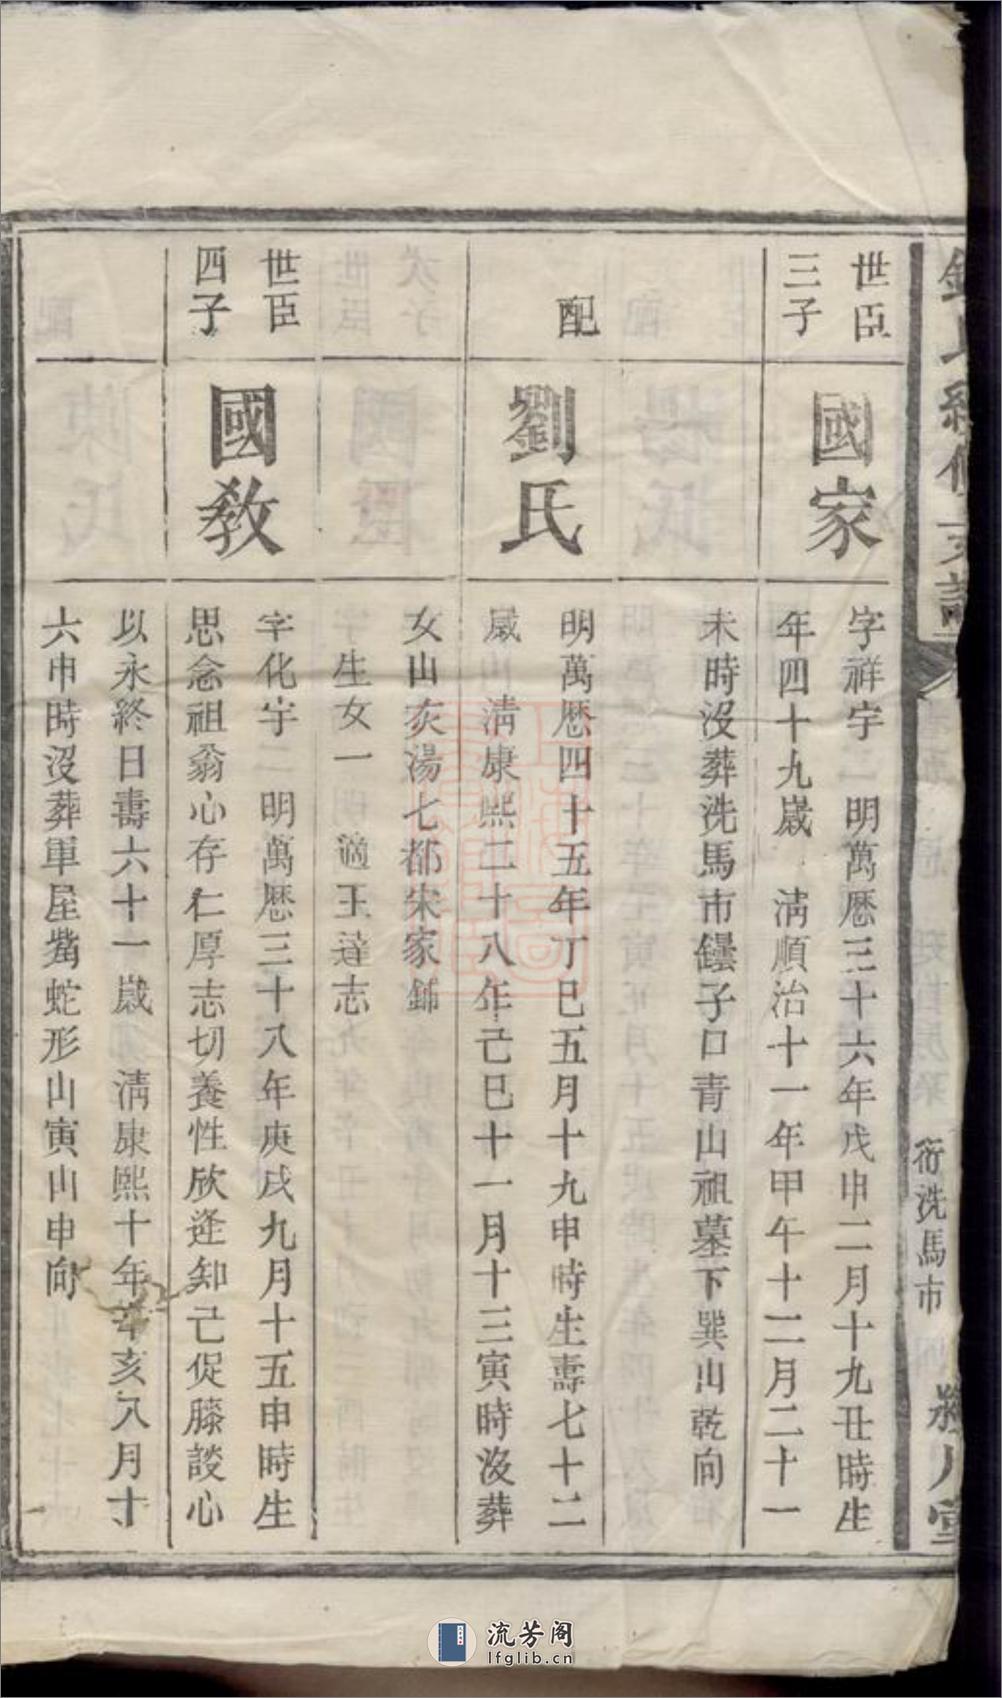 氏
支譜
衍洗馬市
世臣
三子
國家
字祥宇 明萬曆三十六年戊申二月十九丑時生
年四十九歲 淸順治十一年甲午十二月二十一
未時沒葬洗馬市鑸子口青山祖墓下巽山乾向
配
劉氏
明萬曆四十五年丁巳五月十九申時生壽七十二
歲 淸康熙二十八年己巳十一月十三寅時沒葬
女山亥湯七都宋家鋪
生女一 適王 志
世臣
四子
國敎
字化宇 明萬曆三十八年庚戌九月十五申時生
思念祖翁心存仁厚志切養性欣逢知己促膝談心
以永終日壽六十一歲 淸康熙十年辛亥八月十
六申時沒葬軍屋嘴蛇形山寅山申向
流芳阁
lfglib.cn